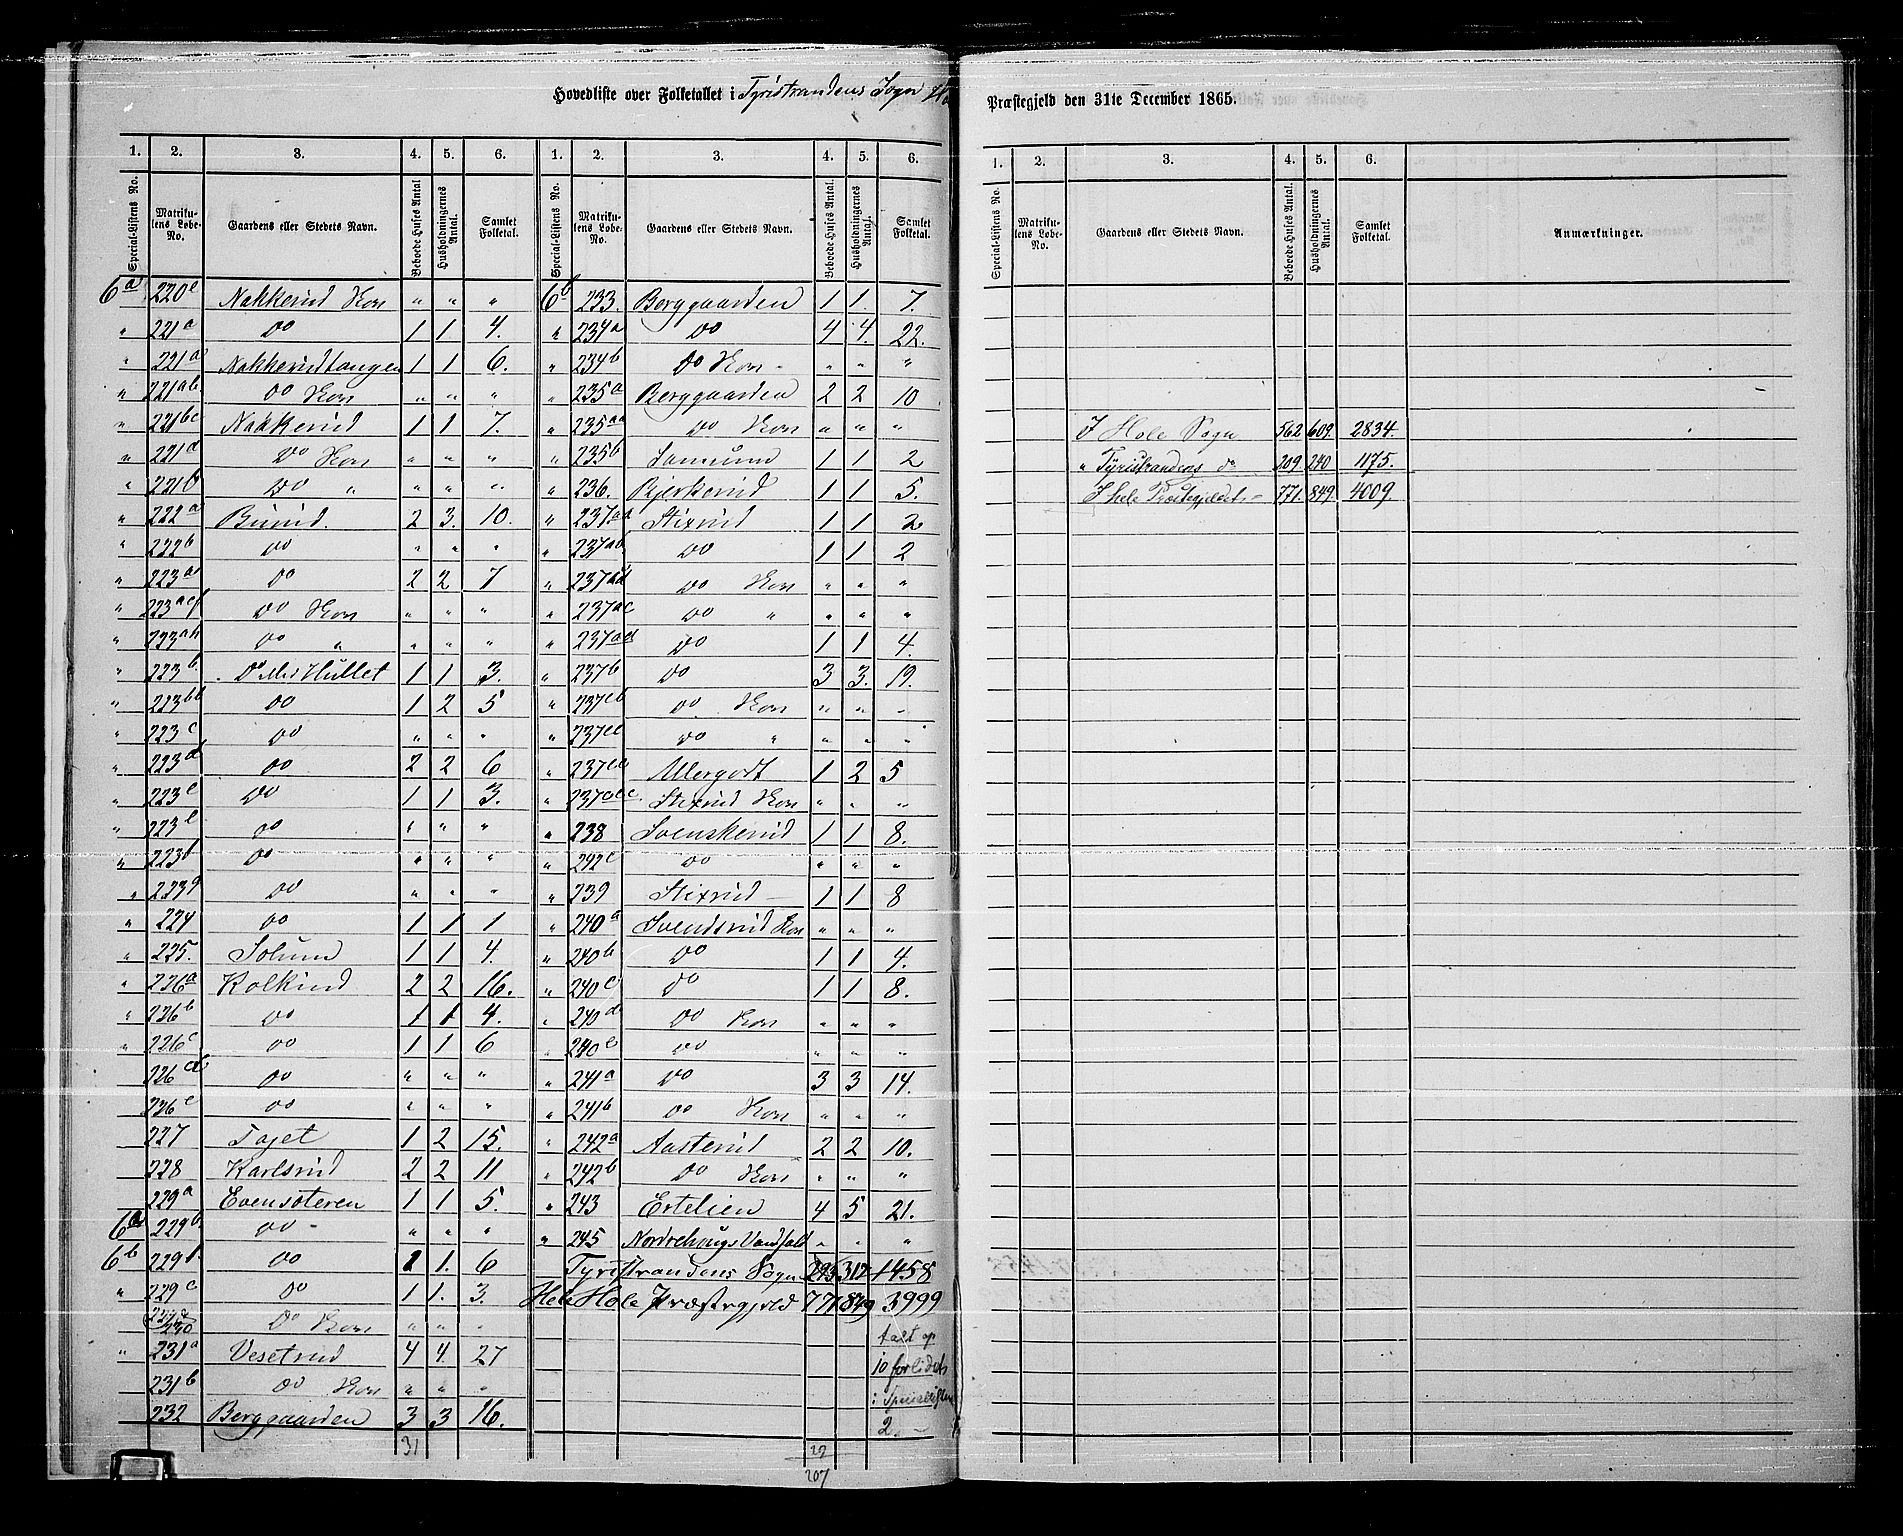 Hovedliste over Folketallet i Tyristrandens Sogn
Præstegjeld den 31te December 1865.
1. 2. 3. 4. 5. 6. 1. 2. 3. 4. 5. 6.
Special-Listens No. Matrikulens Løbe-No. Gaardens eller Stedets Navn. Beboede Huses Antal. Husholdningernes Antal. Samlet Folketal. Special-Listens No. Matrikulens Løbe-No. Gaardens eller Stedets Navn. Beboede Huses Antal. Husholdningernes Antal. Samlet Folketal.
6a 220e Nakkerud " " "
" 221a Do 1 1 4.
" 221a Nakkerudtangen 1 1 6.
" 221ab Do " " "
" 221bc Nakkerud 1 1 7.
" 221d Do " " "
" 221b Do " " " "
" 222a Burud. 2 3. 10.
" 222b Do " " "
" 223a Do 2 2 7
" 223aef Do " " "
" 223ah Do " " " "
" 223b. Do Hullet 1 1 3.
" 223bb Do 1 2 5
" 223c Do " " "
" 223d Do 2 2 6
" 223e Do 1 1 3.
" 223e Do " " "
" 223b Do " " "
" 223g Do " " "
" 224 Do 1 1 1
" 225. Solum 1 1 4.
" 226a Kolkind 2 2 16.
" 226b Do 1 1 4.
" 226c Do 1 1 6
226cd Do " " "
226e Do " " "
227 Tajet 1 2 15.
228 Karlsrud 2 2 11
229a Evensæteren 1 1 5.
6a 229b Do " " "
6b 229b Do 1 1. 6
" 229c Do 1 1. 3.
230 Do " " "
" 231a Vesetrud 4 4. 27
231b Do " " "
232 Berggaarden 3 3 16.
31
6b 233. Berggaarden 1 1. 7.
" 234a Do 4 4. 22.
" 234b Do " " "
" 235a Berggaarden 2 2 10
" 235aa Do " " "
" 235b Samund 1 1 2
" 236. Bjerkerud 1 1 5.
" 237aa Stixrud 1 1 2
" 237ab Do 1 1 2
" 237ad Do " " "
" 237ac Do " " " "
" 237ad Do 1 1 4.
" 237b Do 3 3. 19.
" 237cb Do " " "
" 237cc Do " " " "
" 237cc Allergodt 1 2 5
" 237acc Stixrud " " "
" 238 Svenskerud 1 1 8.
" 242c Do " " "
" 239 Stixrud 1 1 8
" 240a Svendsrud " " "
" 240b Do 1 1 4.
" 240c Do 1 1 8.
" 240d Do " " "
240e Do " " "
" 241a Do 3 3 14.
" 241b Do " " "
" 242a Aasterud 2 2 10.
" 242b Do " " "
" 243 Ertelien 4 5 21.
" 245 Nordrehougs Vandfald " " "
Tyristrandens Sogn 293 312 1458
Hele Hole Præstegjeld 771 849 3999
talt op
10 forlidet
i Speciallisten
2.
29
207
1. 2. 3. 4. 5. 6.
Special-Listens No. Matrikulens Løbe-No. Gaardens eller Stedets Navn. Beboede Huses Antal. Husholdningernes Antal. Samlet Folketal. Anmærkninger.
I Hole Sogn 562 609. 2834.
" Tyristrandens do 209. 240 1175.
I hele Præstegjeldet 771. 849. 4009.